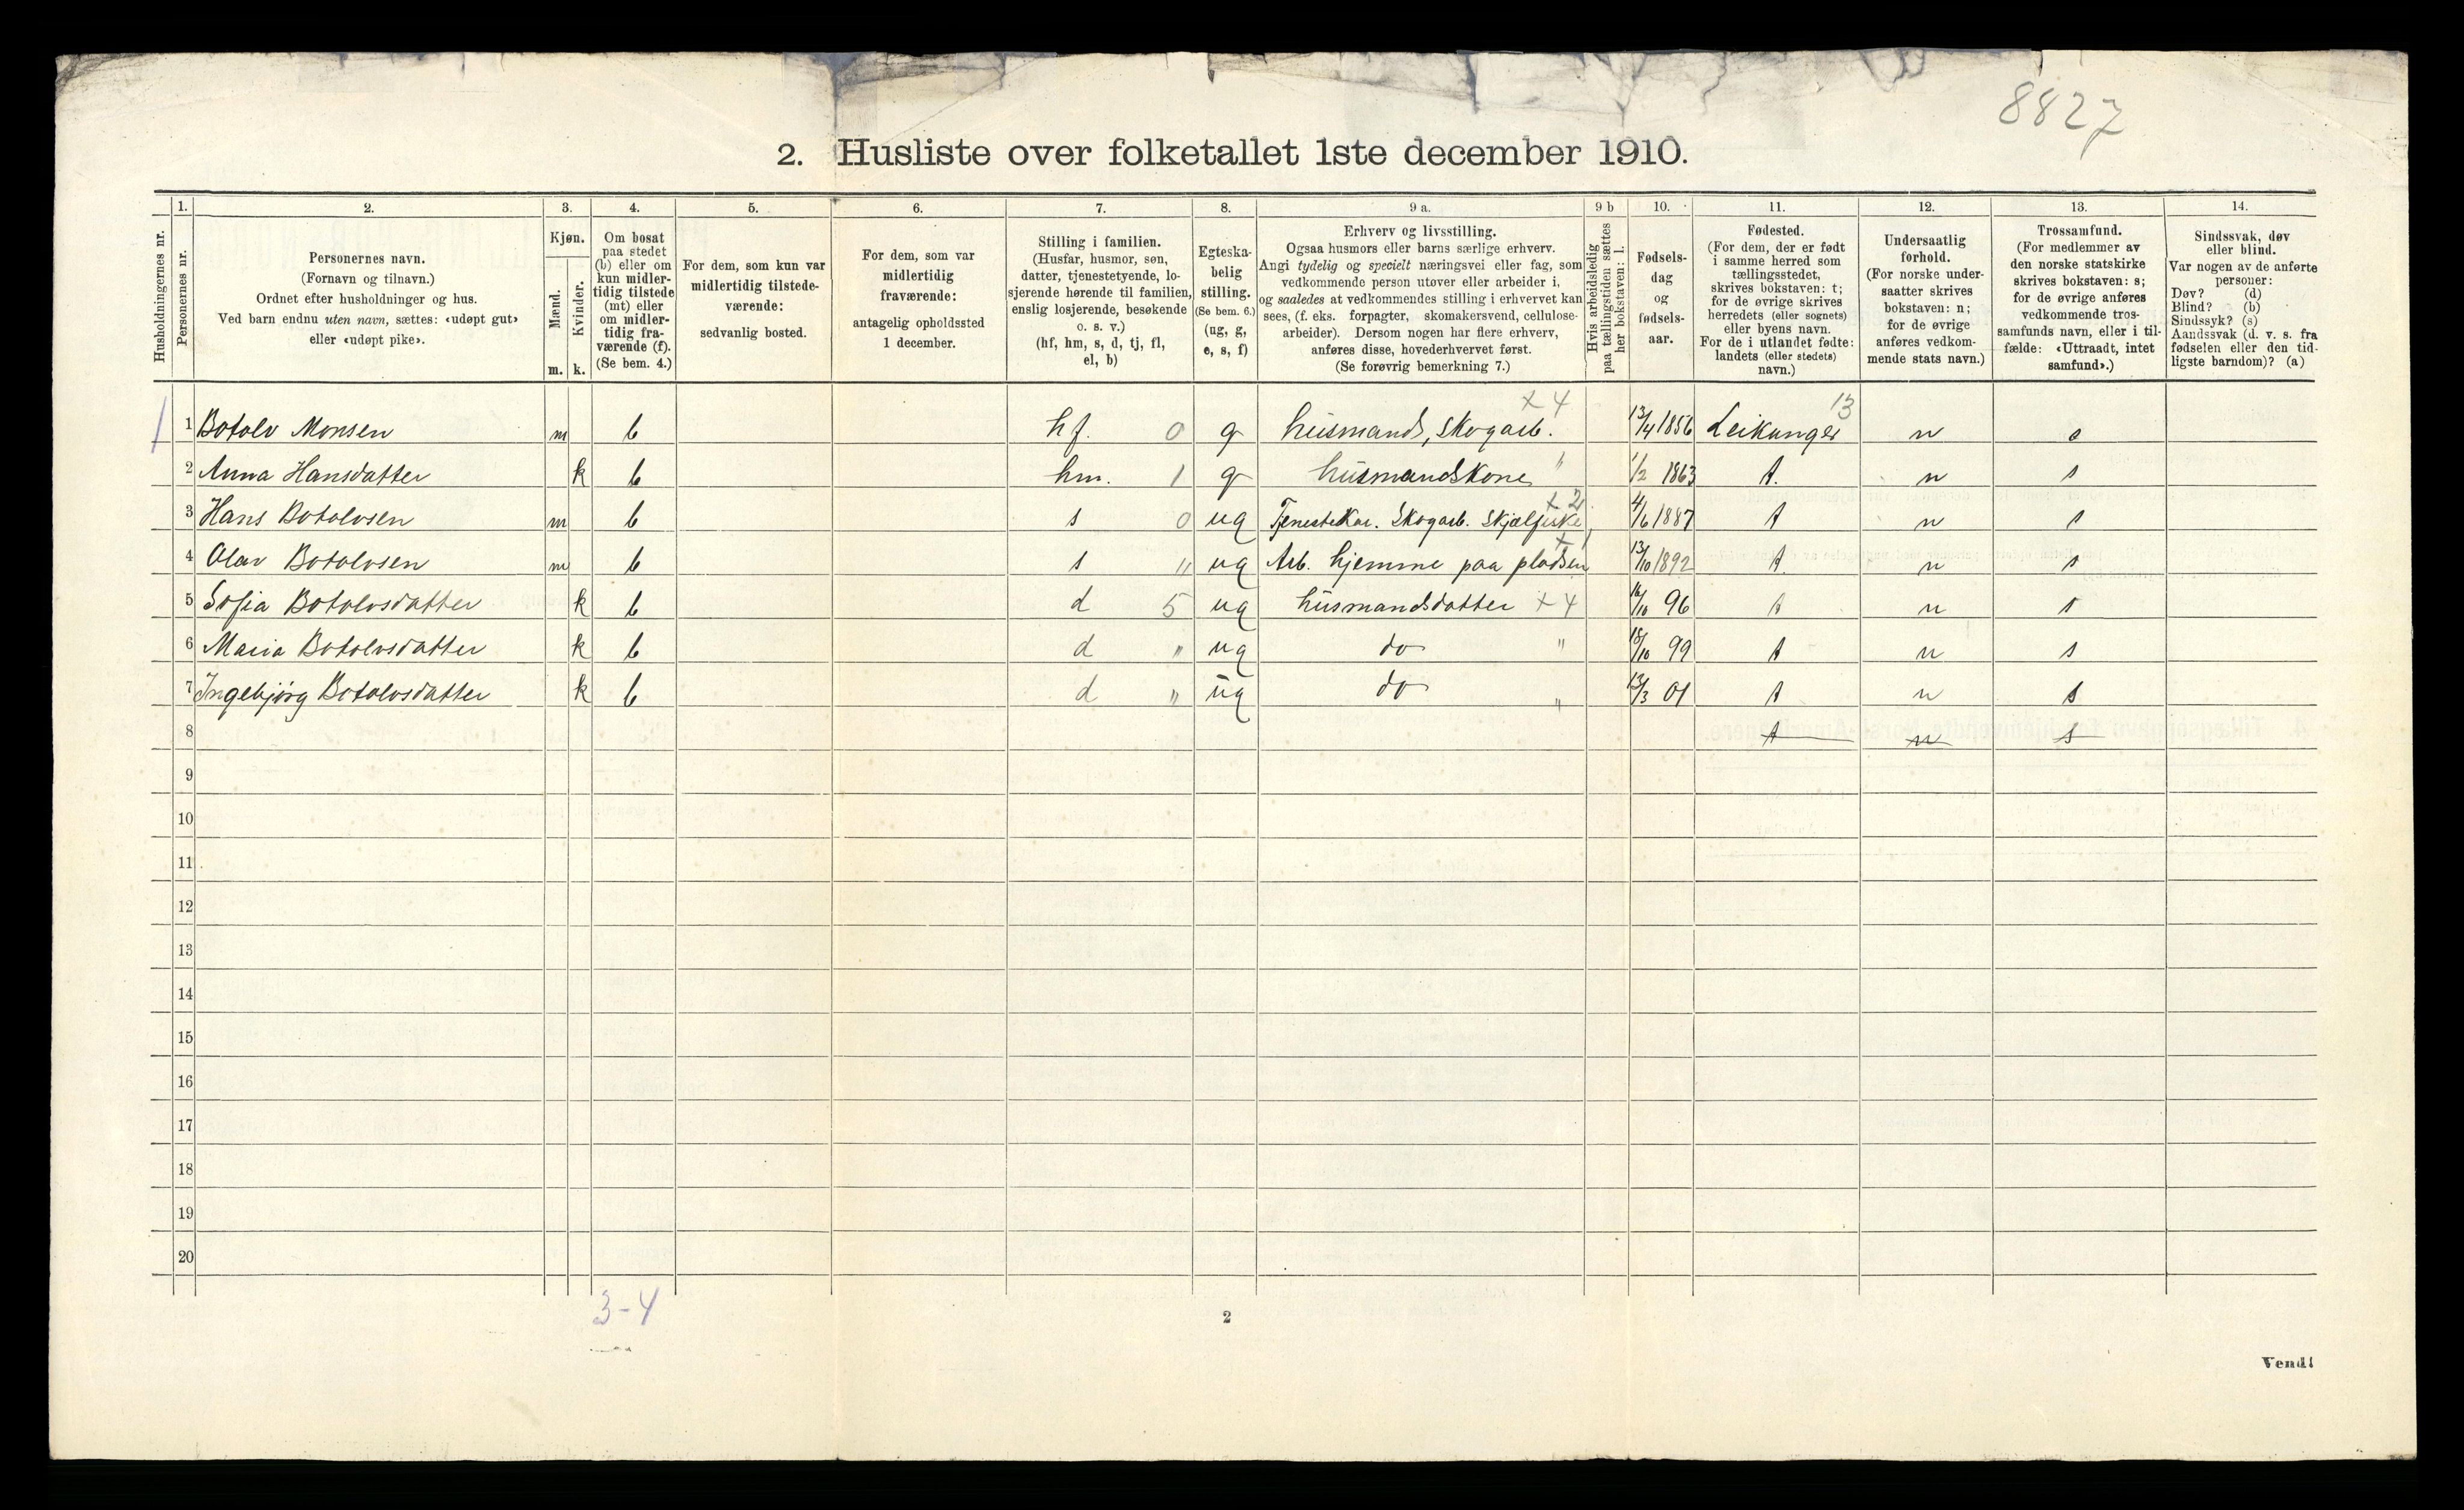 8827
2. Husliste over folketallet 1ste december 1910.
Husholdningernes nr.
1.
Personernes nr.
2.
Personernes navn.
(Fornavn og tilnavn.)
Ordnet efter husholdninger og hus.
Ved barn endnu uten navn, sættes: «udøpt gut»
eller «udøpt pike».
3.
Kjøn.
Mænd.
Kvinder.
m. k.
4.
Om bosat
paa stedet
(b) eller om
kun midler-
tidig tilstede
(mt) eller
om midler-
tidig fra-
værende (f).
(Se bem. 4.)
5.
For dem, som kun var
midlertidig tilstede-
værende:
sedvanlig bosted.
6.
For dem, som var
midlertidig
fraværende:
antagelig opholdssted
1 december.
7.
Stilling i familien.
(Husfar, husmor, søn,
datter, tjenestetyende, lo-
sjerende hørende til familien,
enslig losjerende, besøkende
o. s. v.)
(hf, hm, s, d, tj, fl,
el, b)
8.
Egteska-
belig
stilling.
(Se bem. 6.)
(ug, g,
e, s, f)
9 a.
Erhverv og livsstilling.
Ogsaa husmors eller barns særlige erhverv.
Angi tydelig og specielt næringsvei eller fag, som
vedkommende person utøver eller arbeider i,
og saaledes at vedkommendes stilling i erhvervet kan
sees, (f. eks. forpagter, skomakersvend, cellulose-
arbeider). Dersom nogen har flere erhverv,
anføres disse, hovederhvervet først.
(Se forøvrig bemerkning 7.)
9 b
Hvis arbeidsledig
paa tællingstiden sættes
her bokstaven: l.
10.
Fødsels-
dag
og
fødsels-
aar.
11.
Fødested.
(For dem, der er født
i samme herred som
tællingsstedet,
skrives bokstaven: t;
for de øvrige skrives
herredets (eller sognets)
eller byens navn.
For de i utlandet fødte:
landets (eller stedets)
navn.)
12.
Undersaatlig
forhold.
(For norske under-
saatter skrives
bokstaven: n;
for de øvrige
anføres vedkom-
mende stats navn.)
13.
Trossamfund.
(For medlemmer av
den norske statskirke
skrives bokstaven: s;
for de øvrige anføres
vedkommende tros-
samfunds navn, eller i til-
fælde: «Uttraadt, intet
samfund».)
14.
Sindssvak, døv
eller blind.
Var nogen av de anførte
personer:
Døv? (d)
Blind? (b)
Sindssyk? (s)
Aandssvak (d. v. s. fra
fødselen eller den tid-
ligste barndom)? (a)
x 4 13
1 1 Botolv Monsen m b hf. 0 g husmand, Skogarb. 13/4 1856 Leikanger n s
2 Anna Hansdatter k b hm. 1 g husmandskone " 1/2 1863 t. n s
x 2
3 Hans Botolvsen m b s 0 ug Tjenestekar. Skogarb. Skjælfiske 4/6 1887 t n s
x 1
4 Olav Botolvsen m b s " ug Arb. hjemme paa pladsen 13/10 1892 t n s
5 Sofia Botolvsdatter k b d 5 ug husmandsdatter x 4 16/10 96 t n s
6 Maria Botolvsdatter k b d " ug do " 18/10 99 t n s
7 Ingebjørg Botolvsdatter k b d " ug do " 13/3 01 t n s
8 t n s
9
10
11
12
13
14
15
16
17
18
19
20
3-4
2
Vend!